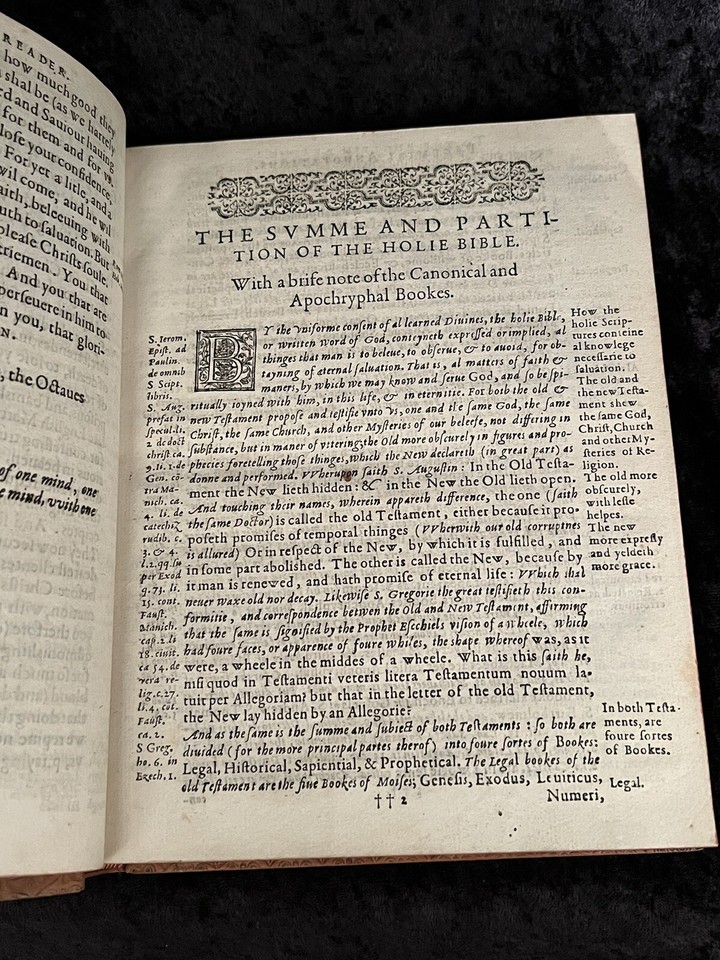 READER.
how much good they
shal be (as we hartely
rd and Sauiour hauing
for them and for vs.
lose your confidence,
For yet a litle, and a
wil come, and he wil
aith, beleeuing with
uth to saluation. But
please Christs soule.
triemen. You that
And you that are
perseuere in him to
n you, that glori-
N.
, the Octaues
of one mind, one
e mind, vvith one
THE SVMME AND PARTI-
TION OF THE HOLIE BIBLE.
With a brife note of the Canonical and
Apochryphal Bookes.
BY the vniforme consent of al learned Diuines, the holie Bible,
or written word of God, conteyneth expressed or implied, al
thinges that man is to beleue, to obserue, & to auoid, for ob-
tayning of eternal saluation. That is, al matters of faith &
maners, by which we may know and serue God, and so be spi-
ritually ioyned with him, in this life, & in eternitie. For both the old &
new Testament propose and testifie vnto vs, one and the same God, the same
Christ, the same Church, and other Mysteries of our beleefe, not differing in
substance, but in maner of vttering; the Old more obscurely in figures and pro-
phecies foretelling those thinges, which the New declareth (in great part) as
donne and performed. VVherupon saith S. Augustin: In the Old Testa-
ment the New lieth hidden: & in the New the Old lieth open.
And touching their names, wherein appareth difference, the one (saith
the same Doctor) is called the old Testament, either because it pro-
poseth promises of temporal thinges (VVherwith our old corruptnes
is allured) Or in respect of the New, by which it is fulfilled, and
in some part abolished. The other is called the New, because by
it man is renewed, and hath promise of eternal life: VVhich shal
neuer waxe old nor decay. Likewise S. Gregorie the great testifieth this con-
formitie, and correspondence betwen the Old and New Testament, affirming
that the same is signified by the Prophet Ezechiels vision of a wheele, which
had foure faces, or apparence of foure wheles, the shape whereof was, as it
were, a wheele in the middes of a wheele. What is this saith he,
nisi quod in Testamenti veteris litera Testamentum nouum la-
tuit per Allegoriam? but that in the letter of the old Testament,
the New lay hidden by an Allegorie?
And as the same is the summe and subiect of both Testaments: so both are
diuided (for the more principal partes therof) into foure sortes of Bookes:
Legal, Historical, Sapiential, & Prophetical. The Legal bookes of the
old Testament are the fiue Bookes of Moises; Genesis, Exodus, Leuiticus,
†† 2
Numeri,
S. Ierom,
Epist. ad
Paulin.
de omnib
S Script.
libris.
S. Aug.
prefat in
Specul. li.
2 de doct
christ ca.
9. li. 2. de
Gen. cō-
tra Ma-
nich. ca.
4. li. de
catechiz
rudib. c.
3. & 4.
l. 2. qq. su
per Exod
q. 73. li.
15. cont.
Faust.
Manich.
cap. 2. li
18. ciuit.
ca 54. de
vera re-
lig. c. 27.
li. 4. cōt.
Faust.
ca. 2.
S Greg.
ho. 6. in
Ezech. 1.
How the
holie Scrip-
tures conteine
al knowlege
necessarie to
saluation.
The old and
the new Testa-
ment shew
the same God,
Christ, Church
and other My-
steries of Re-
ligion.
The old more
obscurely,
with lesse
helpes.
The new
more expresly
and yeldeth
more grace.
In both Testa-
ments, are
foure sortes
of Bookes.
Legal.